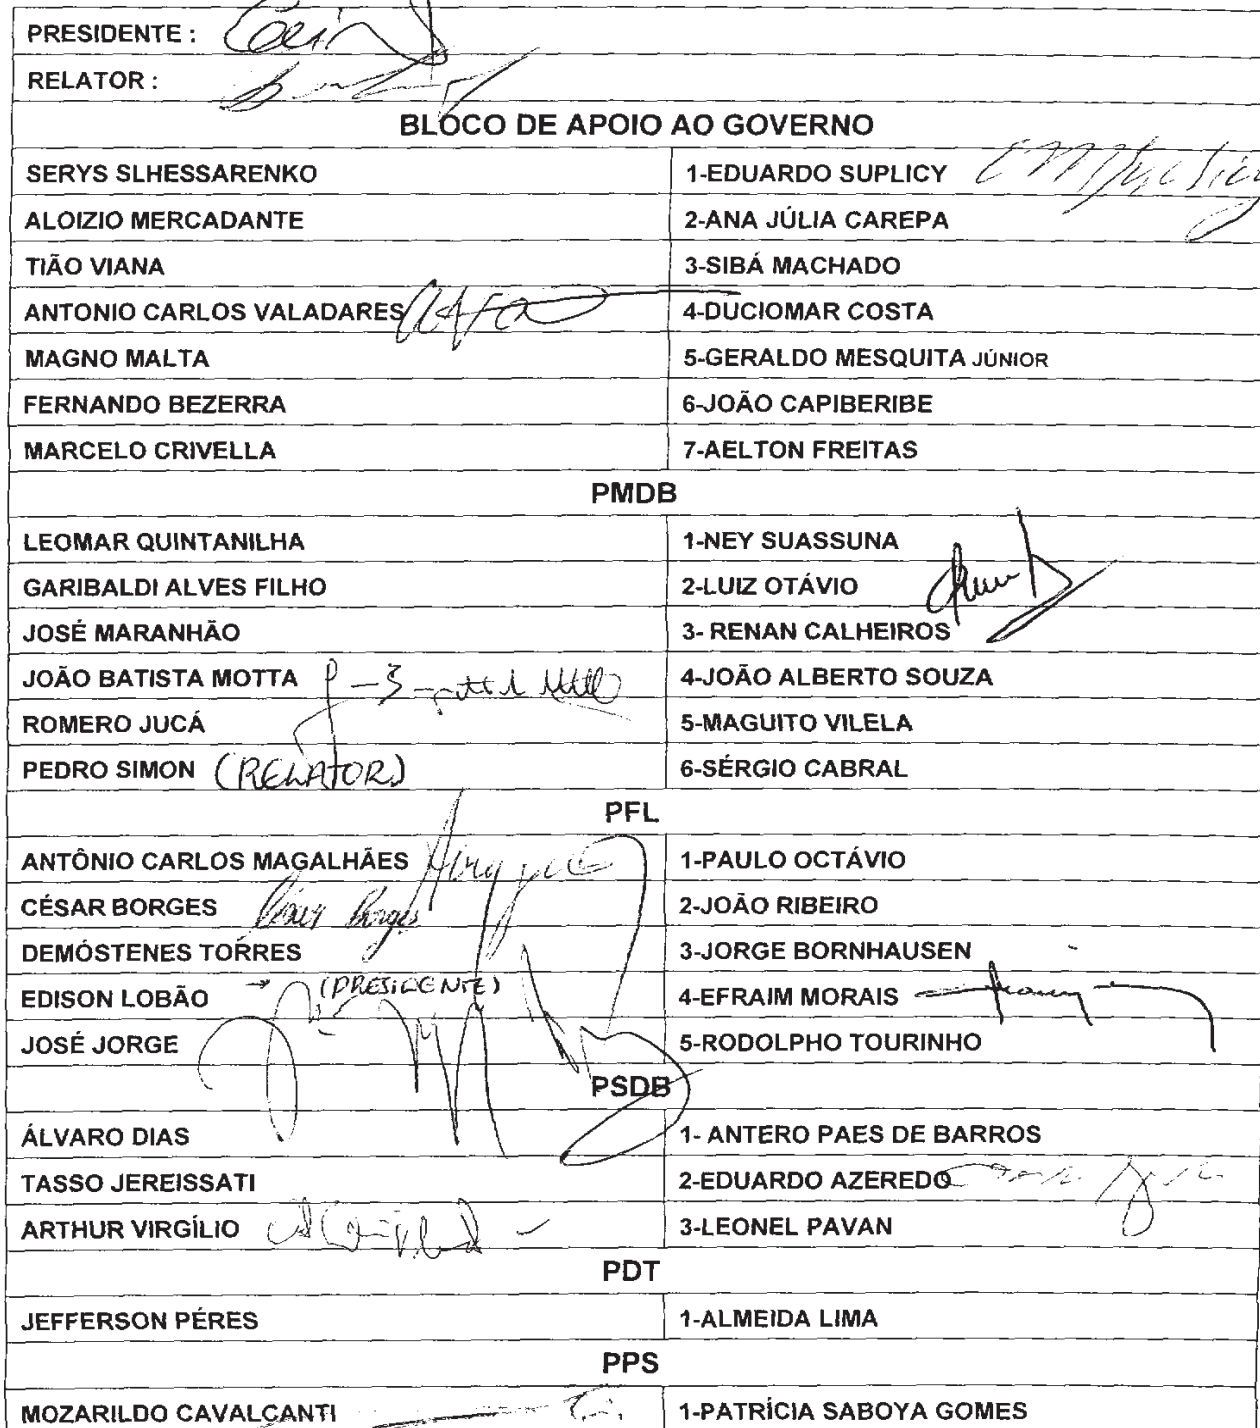 PRESIDENTE :
RELATOR :
BLOCO DE APOIO AO GOVERNO
SERYS SLHESSARENKO 1-EDUARDO SUPLICY
ALOIZIO MERCADANTE 2-ANA JÚLIA CAREPA
TIÃO VIANA 3-SIBÁ MACHADO
ANTONIO CARLOS VALADARES 4-DUCIOMAR COSTA
MAGNO MALTA 5-GERALDO MESQUITA JÚNIOR
FERNANDO BEZERRA 6-JOÃO CAPIBERIBE
MARCELO CRIVELLA 7-AELTON FREITAS
PMDB
LEOMAR QUINTANILHA 1-NEY SUASSUNA
GARIBALDI ALVES FILHO 2-LUIZ OTÁVIO
JOSÉ MARANHÃO 3- RENAN CALHEIROS
JOÃO BATISTA MOTTA 4-JOÃO ALBERTO SOUZA
ROMERO JUCÁ 5-MAGUITO VILELA
PEDRO SIMON (RELATOR) 6-SÉRGIO CABRAL
PFL
ANTÔNIO CARLOS MAGALHÃES 1-PAULO OCTÁVIO
CÉSAR BORGES César Borges 2-JOÃO RIBEIRO
DEMÓSTENES TORRES 3-JORGE BORNHAUSEN
EDISON LOBÃO → (PRESIDENTE) 4-EFRAIM MORAIS
JOSÉ JORGE 5-RODOLPHO TOURINHO
PSDB
ÁLVARO DIAS 1- ANTERO PAES DE BARROS
TASSO JEREISSATI 2-EDUARDO AZEREDO
ARTHUR VIRGÍLIO 3-LEONEL PAVAN
PDT
JEFFERSON PÉRES 1-ALMEIDA LIMA
PPS
MOZARILDO CAVALCANTI 1-PATRÍCIA SABOYA GOMES